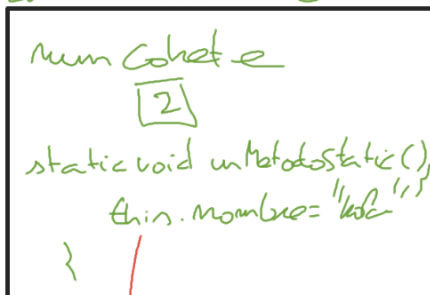 numCohete
2
static void unMetodoStatic(){
this.nombre="kofa";
}